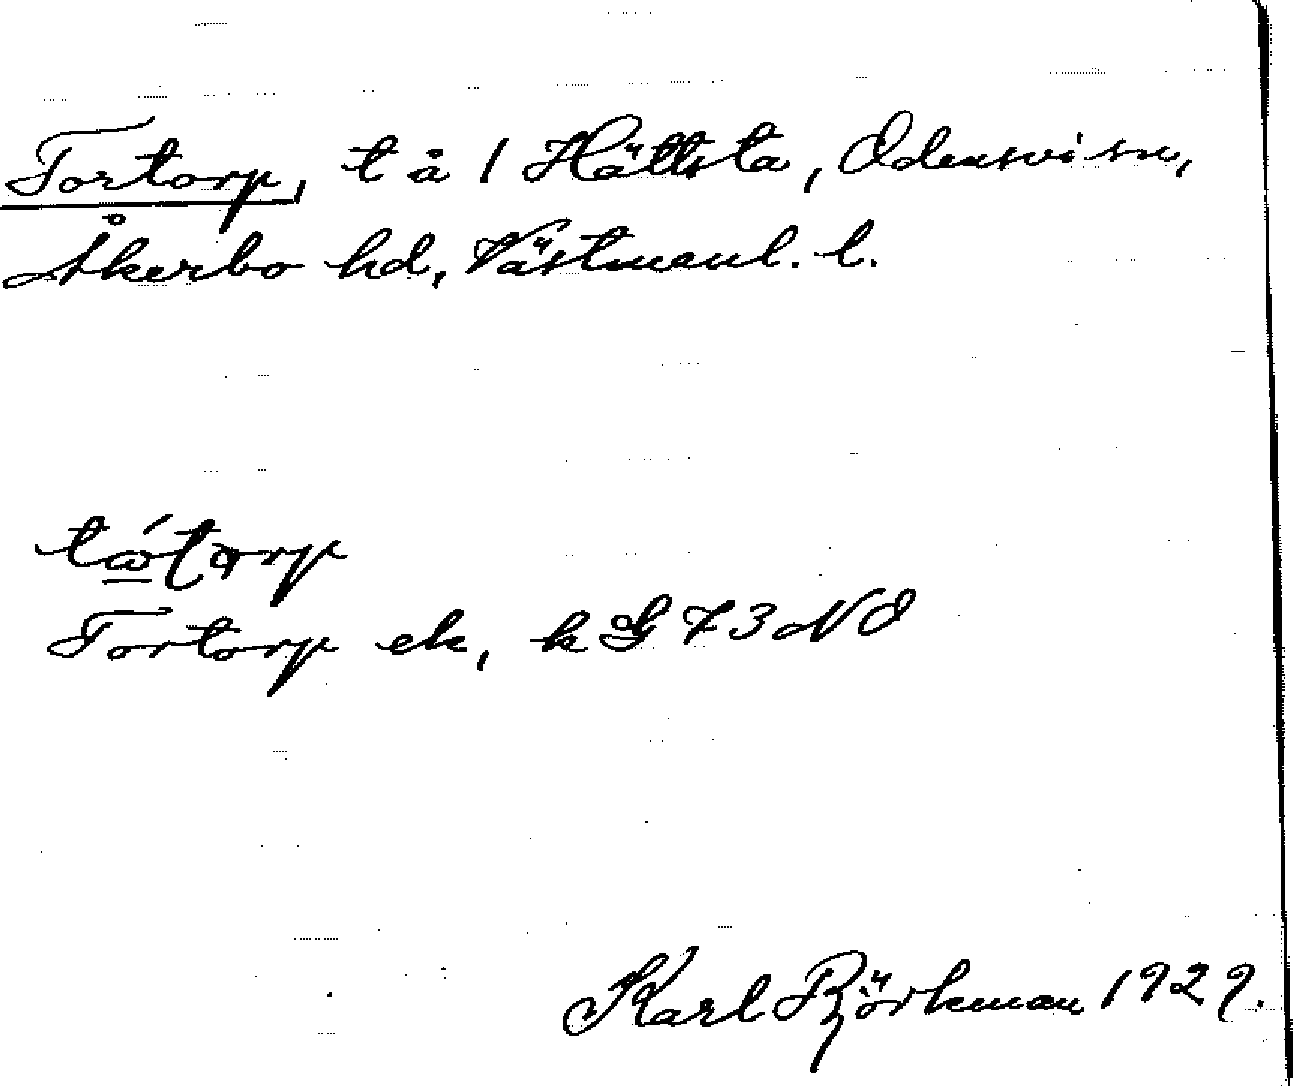 Tortorp, t å 1 Hättsta, Odensvi sn,
Åkerbo hd, Västmanl. l.
Tortorp ek, k G 73 NO
Karl Björkman 1929.